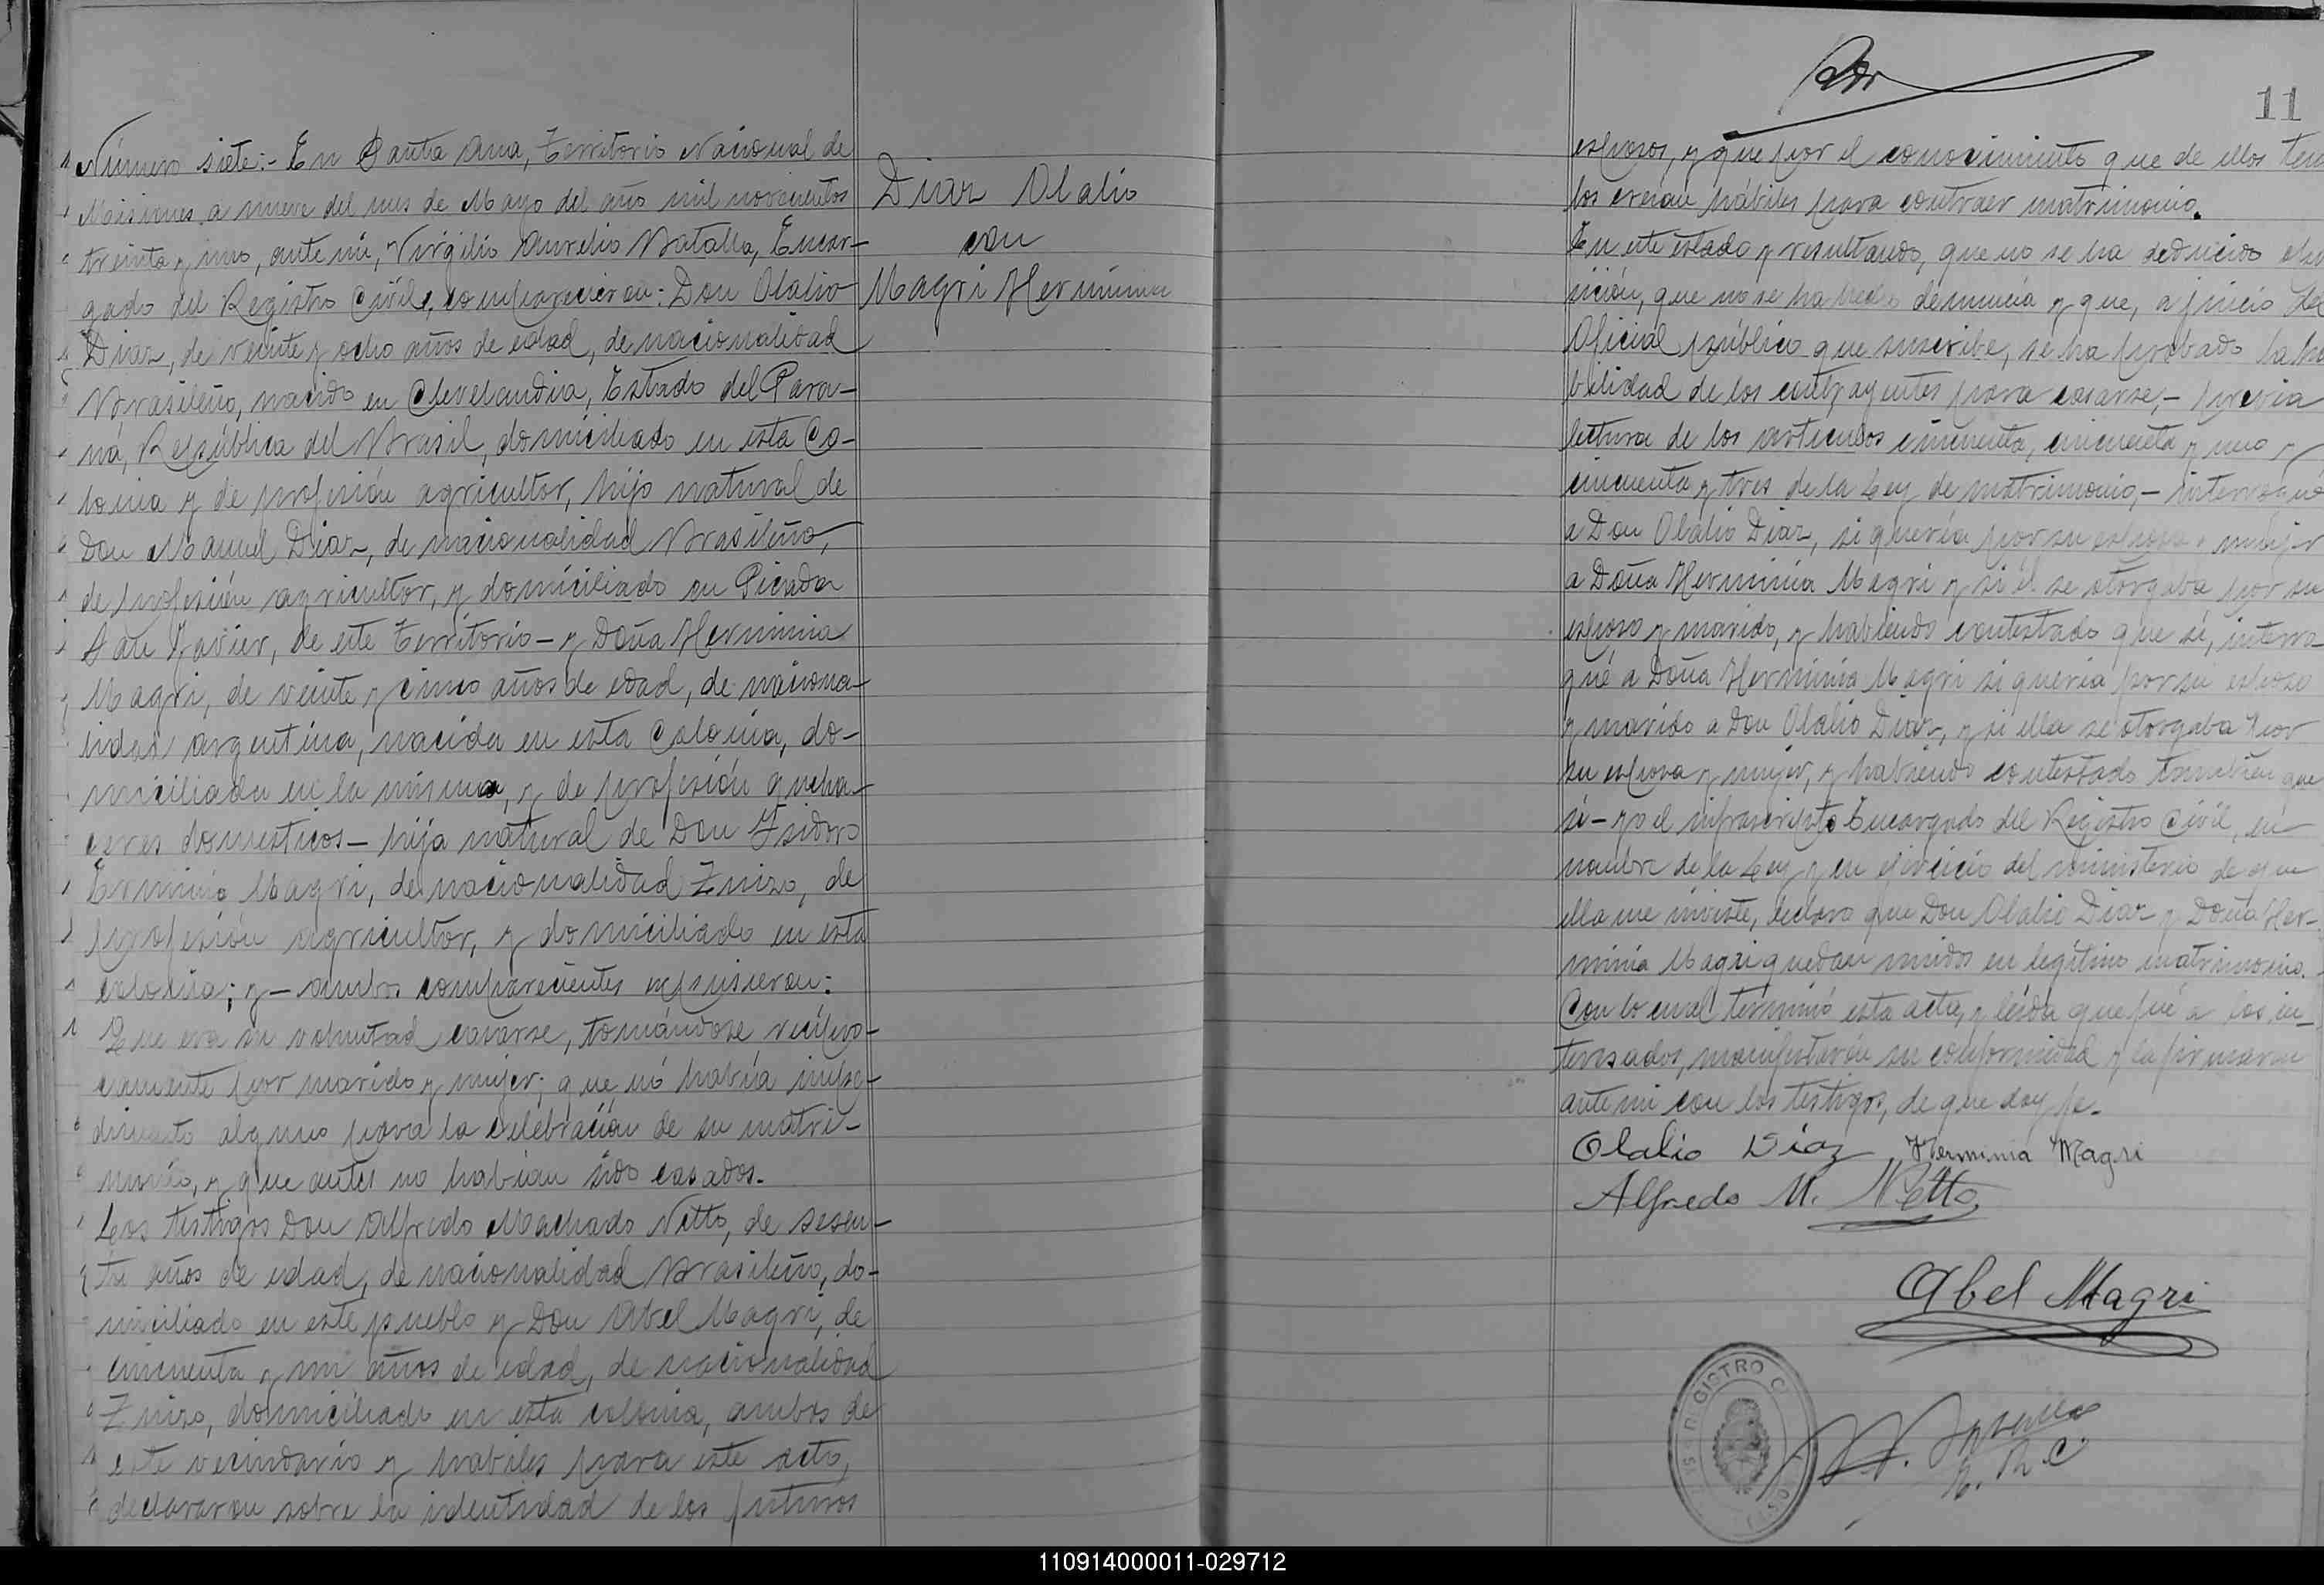 Número siete:- En Santa Ana, Territorio Nacional de
Misiones a nueve del mes de Mayo del año mil novecientos
treinta y uno, ante mí, Virgilio Aurelio Batalla, Encar-
gado del Registro Civil, comparecieron: Don Olalio
Diaz, de veinte y ocho años de edad, de nacionalidad
Brasileño, nacido en Clevelandia, Estado del Para-
ná, República del Brasil, domiciliado en esta Co-
lonia y de profesión agricultor, hijo natural de
Don Manuel Diaz, de nacionalidad Brasileño,
de profesión agricultor, y domiciliado en Picada
San Javier, de este Territorio- y Doña Herminia
Magri, de veinte y cinco años de edad, de naciona-
lidad argentina, nacida en esta Colonia, do-
miciliada en la misma, y de profesión queha-
ceres domesticos- hija natural de Don Isidoro
Erminio Magri, de nacionalidad Zuizo, de
profesión agricultor, y domiciliado en esta
colonia; y- ambos comparecientes expusieron:
Que era su voluntad casarse, tomándose recípro-
camente por marido y mujer; que nó había impe-
dimento alguno para la celebración de su matri-
monio, y que antes no habían sido casados.
Los testigos Don Alfredo Machado Netto, de sesen-
ta años de edad, de nacionalidad Brasileño, do-
miciliado en este pueblo y Don Abel Magri, de
cincuenta y un años de edad, de nacionalidad
Zuizo, domiciliado en esta colonia, ambos de
este vecindario y habiles para este acto,
declararon sobre la identidad de los futuros
Diaz Olalio
con
Magri Herminia
11
esposos, y que por el conocimiento que de ellos ten
los creían hábiles para contraer matrimonio.
En este estado y resultando, que no se ha deducido opo
sición, que no se ha hecho denuncia y que, a juicio del
Oficial público que suscribe, se ha probado la ha
bilidad de los contrayentes para casarse,- previa
lectura de los articulos cincuenta, cincuenta y uno y
cincuenta y tres de la Ley de matrimonio,- interrogué
a Don Olalio Diaz, si quería por su esposa y mujer
a Doña Herminia Magri y si él se otorgaba por su
esposo y marido, y habiendo contestado que sí, interro-
gué a Doña Herminia Magri si quería por su esposo
y marido a Don Olalio Diaz, y si ella se otorgaba por
su esposa y mujer, y habiendo contestado también que
si- yo el infrascripto Encargado del Registro Civil, en
nombre de la Ley y en ejercicio del ministerio de que
ella me inviste, declaro que Don Olalio Diaz y Doña Her-
minia Magri quedan unidos en legítimo matrimonio.
Con lo cual terminó esta acta, y leída que fué a los in-
teresados, manifestarón su conformidad y la firmaron
ante mi con los testigos, de que doy fe.
Olalio Diaz Herminia Magri
Alfredo M. Netto
Abel Magri
REGISTRO
110914000011-029712